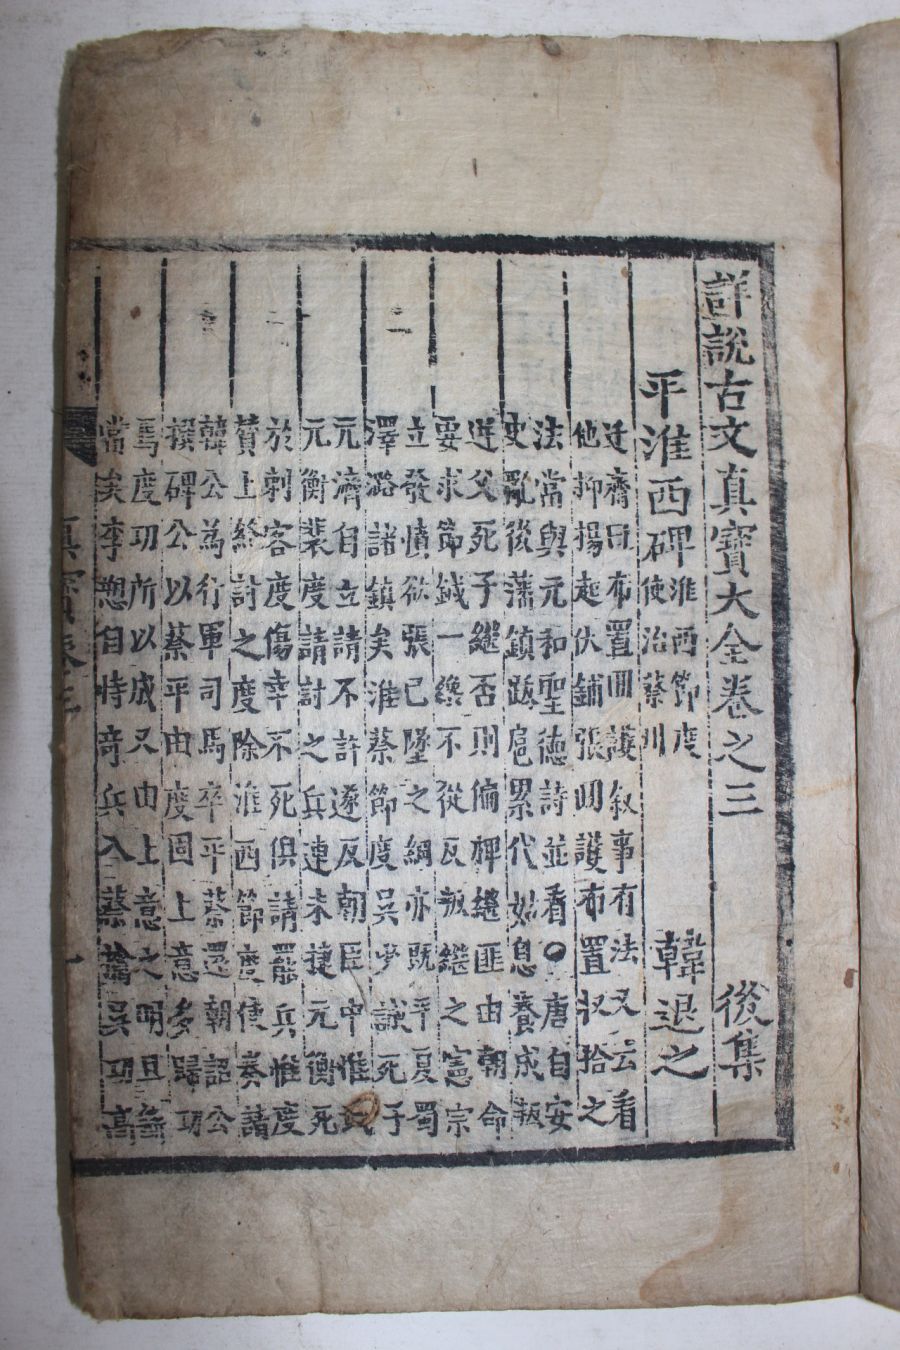 詳說古文真寶大全卷之三 後集
平淮西碑 淮西節度 韓退之
使治蔡州
迂齋曰布置回護叙事有法又云看
他抑揚起伏鋪張回護布置収拾之
法當與元和聖德詩並看○唐自安
史亂後藩鎮跋扈累代姑息養成叛
逆父死子繼否則偏裨繼匪由朝命
要求節鉞一纔不從反叛繼之憲宗
立發憤欲張已墜之綱亦既平夏蜀
澤潞諸鎮矣淮蔡節度吳少誠死子
元濟自立請不許遂反朝臣中惟武
元衡裴度請討之兵連未捷元衡死
於刺客度傷幸不死俱請罷兵惟度
贊上終討之度除淮西節度使奏請
韓公為行軍司馬卒平蔡還朝詔公
撰碑公以蔡平由度固上意多歸功
焉度功所以成又由上意之明且斷
當矣李愬自恃竒兵入蔡擒吳功高
真寳卷三 一